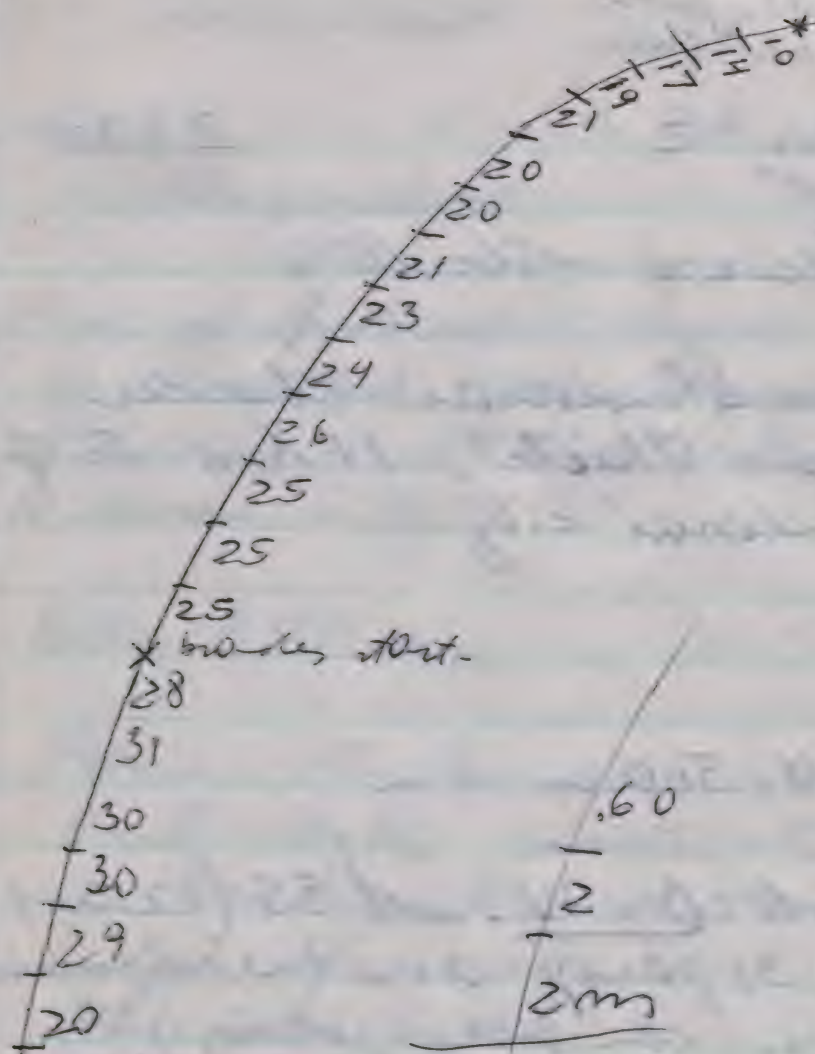 10
14
17
19
21
20
20
21
23
24
26
25
25
25
branches start-
28
31
30
30
29
20
.60
2
2m